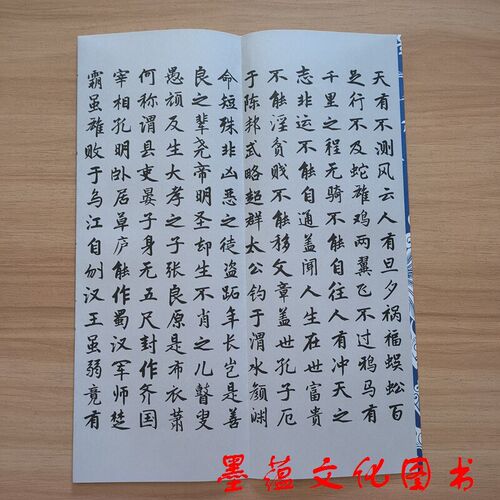 天有不测风云人有旦夕祸福蜈蚣百
足行不及蛇雄鸡两翼飞不过鸦马有
千里之程无骑不能自往人有冲天之
志非运不能自通盖闻人生在世富贵
不能淫贫贱不能移文章盖世孔子厄
于陈邦武略超群太公钓于渭水颜渊
命短殊非凶恶之徒盗跖年长岂是善
良之辈尧帝明圣却生不肖之儿瞽叟
愚顽反生大孝之子张良原是布衣萧
何称谓县吏晏子身无五尺封作齐国
宰相孔明卧居草庐能作蜀汉军师楚
霸虽雄败于乌江自刎汉王虽弱竟有
墨蕴文化图书